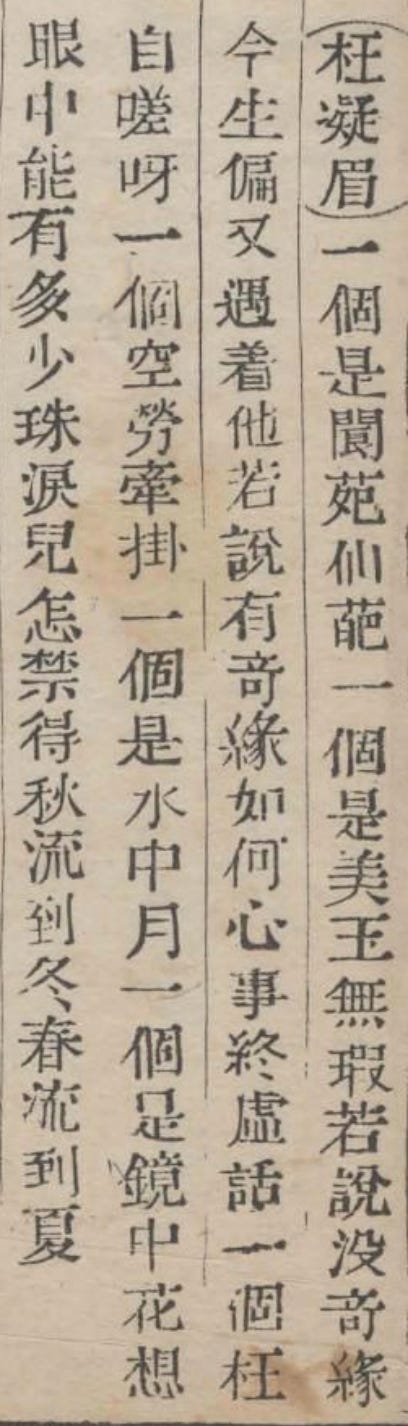 枉凝眉一個是閬苑仙葩一個是美玉無瑕若說没奇緣
今生偏又遇着他若說有奇緣如何心事終虛話一個枉
自嗟呀一個空勞牽掛一個是水中月一個是鏡中花想
眼中能有多少珠淚兒怎禁得秋流到冬春流到夏